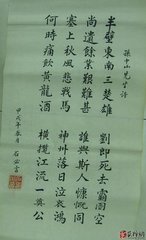 孫中山先生詩
半壁東南三楚雄 劉郎死去霸圖空
尚遺餘業艱難甚 誰與斯人慷慨同
塞上秋風悲戰馬 神州落日泣哀鴻
何時痛飲黃龍酒 橫攬江流一奠公
年春月 石 書